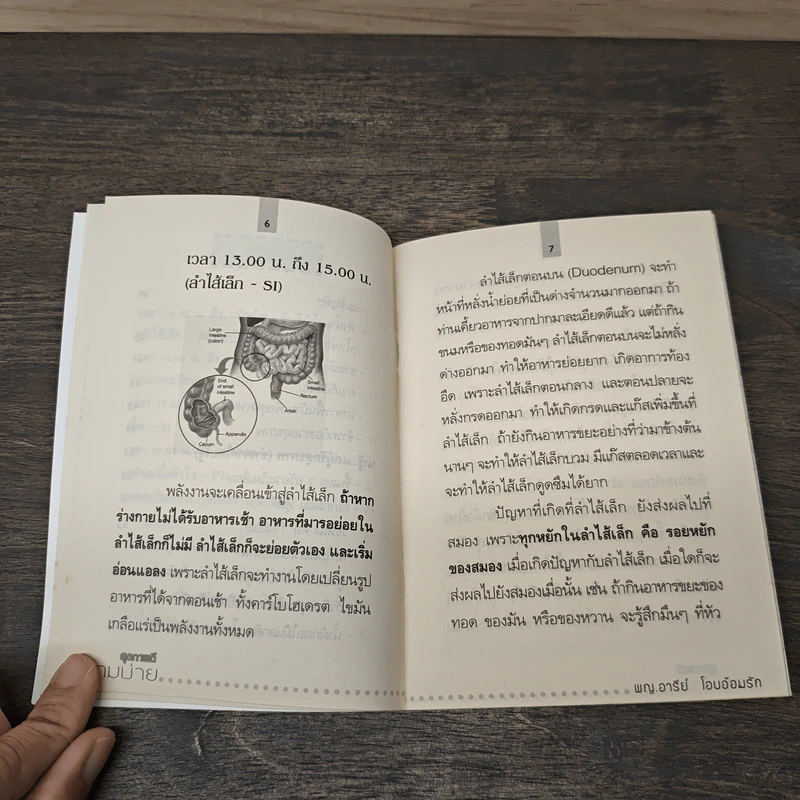 6
เวลา 13.00 น. ถึง 15.00 น.
(ลำไส้เล็ก - SI)
Large
intestine
(colon)
End
of small
intestine
Small
intestine
Rectum
Anus
Appendix
Cecum
พลังงานจะเคลื่อนเข้าสู่ลำไส้เล็ก ถ้าหาก
ร่างกายไม่ได้รับอาหารเช้า อาหารที่มารอย่อยใน
ลำไส้เล็กก็ไม่มี ลำไส้เล็กก็จะย่อยตัวเอง และเริ่ม
อ่อนแอลง เพราะลำไส้เล็กจะทำงานโดยเปลี่ยนรูป
อาหารที่ได้จากตอนเช้า ทั้งคาร์โบโฮเดรต ไขมัน
เกลือแร่เป็นพลังงานทั้งหมด
สุขภาพดี
ยามบ่าย
7
ลำไส้เล็กตอนบน (Duodenum) จะทำ
หน้าที่หลั่งน้ำย่อยที่เป็นด่างจำนวนมากออกมา ถ้า
ท่านเคี้ยวอาหารจากปากมาละเอียดดีแล้ว แต่ถ้ากิน
ขนมหรือของทอดมันๆ ลำไส้เล็กตอนบนจะไม่หลั่ง
ด่างออกมา ทำให้อาหารย่อยยาก เกิดอาการท้อง
อืด เพราะลำไส้เล็กตอนกลาง และตอนปลายจะ
หลั่งกรดออกมา ทำให้เกิดกรดและแก๊สเพิ่มขึ้นที่
ลำไส้เล็ก ถ้ายังกินอาหารขยะอย่างที่ว่ามาข้างต้น
นานๆ จะทำให้ลำไส้เล็กบวม มีแก๊สตลอดเวลาและ
จะทำให้ลำไส้เล็กดูดซึมได้ยาก
ปัญหาที่เกิดที่ลำไส้เล็ก ยังส่งผลไปที่
สมอง เพราะทุกหยักในลำไส้เล็ก คือ รอยหยัก
ของสมอง เมื่อเกิดปัญหากับลำไส้เล็ก เมื่อใดก็จะ
ส่งผลไปยังสมองเมื่อนั้น เช่น ถ้ากินอาหารขยะของ
ทอด ของมัน หรือของหวาน จะรู้สึกมึนๆ ที่หัว
พญ.อารีย์ โอบอ้อมรัก